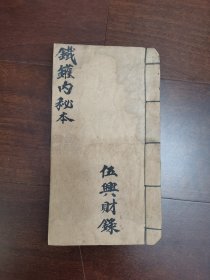 鐵鑵内秘本
伍興財錄